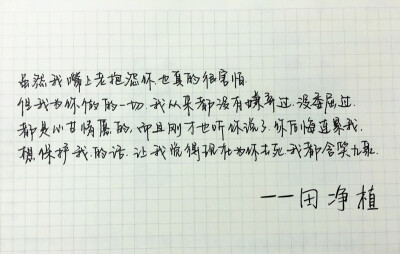 虽然我嘴上老抱怨你也真的很害怕.
但我为你做的的一切.我从来都没有嫌弃过.没委屈过.
都是心甘情愿的.而且刚才也听你说了.你后悔连累我.
想保护我.的话.让我觉得现在为你去死我都含笑九泉.
——田净植